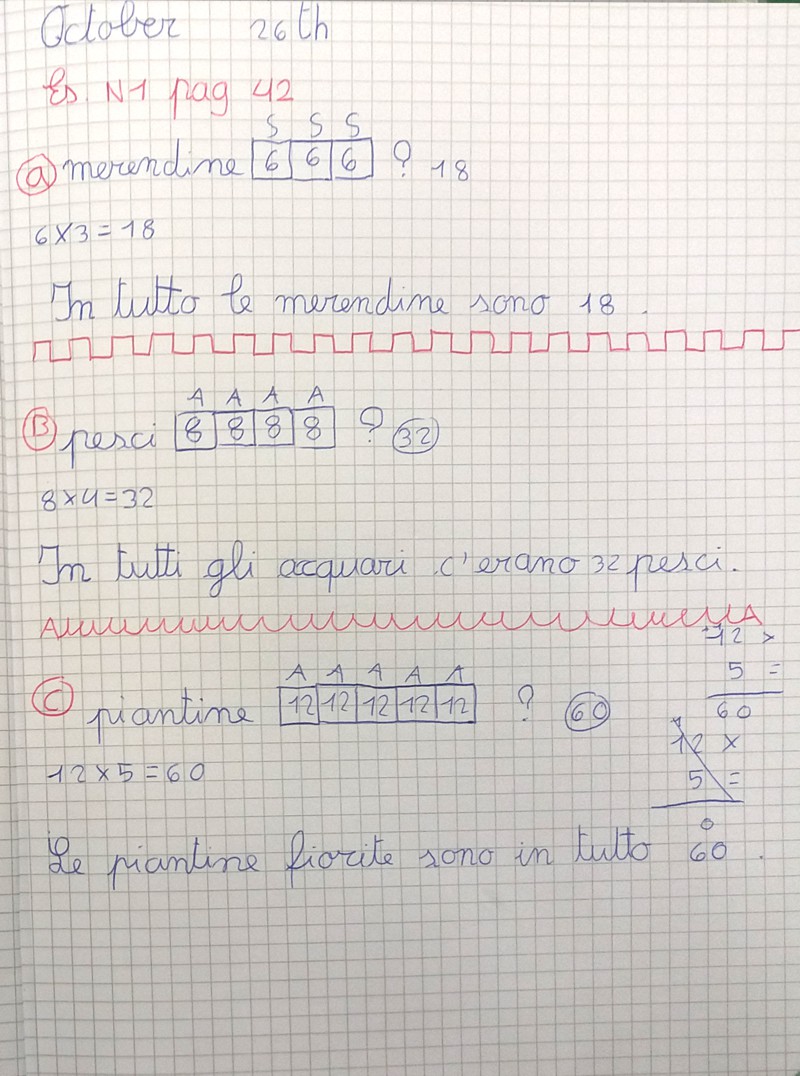 October 26th
Es. N1 pag 42
S S S
a merendine 6 6 6 ? 18
6x3=18
In tutto le merendine sono 18.
A A A A
B pesci 8 8 8 8 ? 32
8x4=32
In tutti gli acquari c'erano 32 pesci.
12 x
5 =
60
A A A A A
C piantine 12 12 12 12 12 ? 60
12 x
5 =
0
12x5=60
Le piantine fiorite sono in tutto 60.